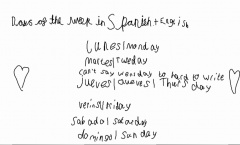 Days of the week in Spanish + English
Lunes|monday
martes|tuesday
can't say wensday to hard to write
Jueves|Jueves| Thurs day
verins|friday
sabado|saturday
domingo|sunday